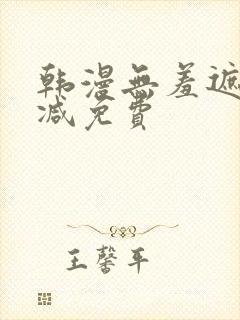 韩漫無羞遮
减免費
王馨平